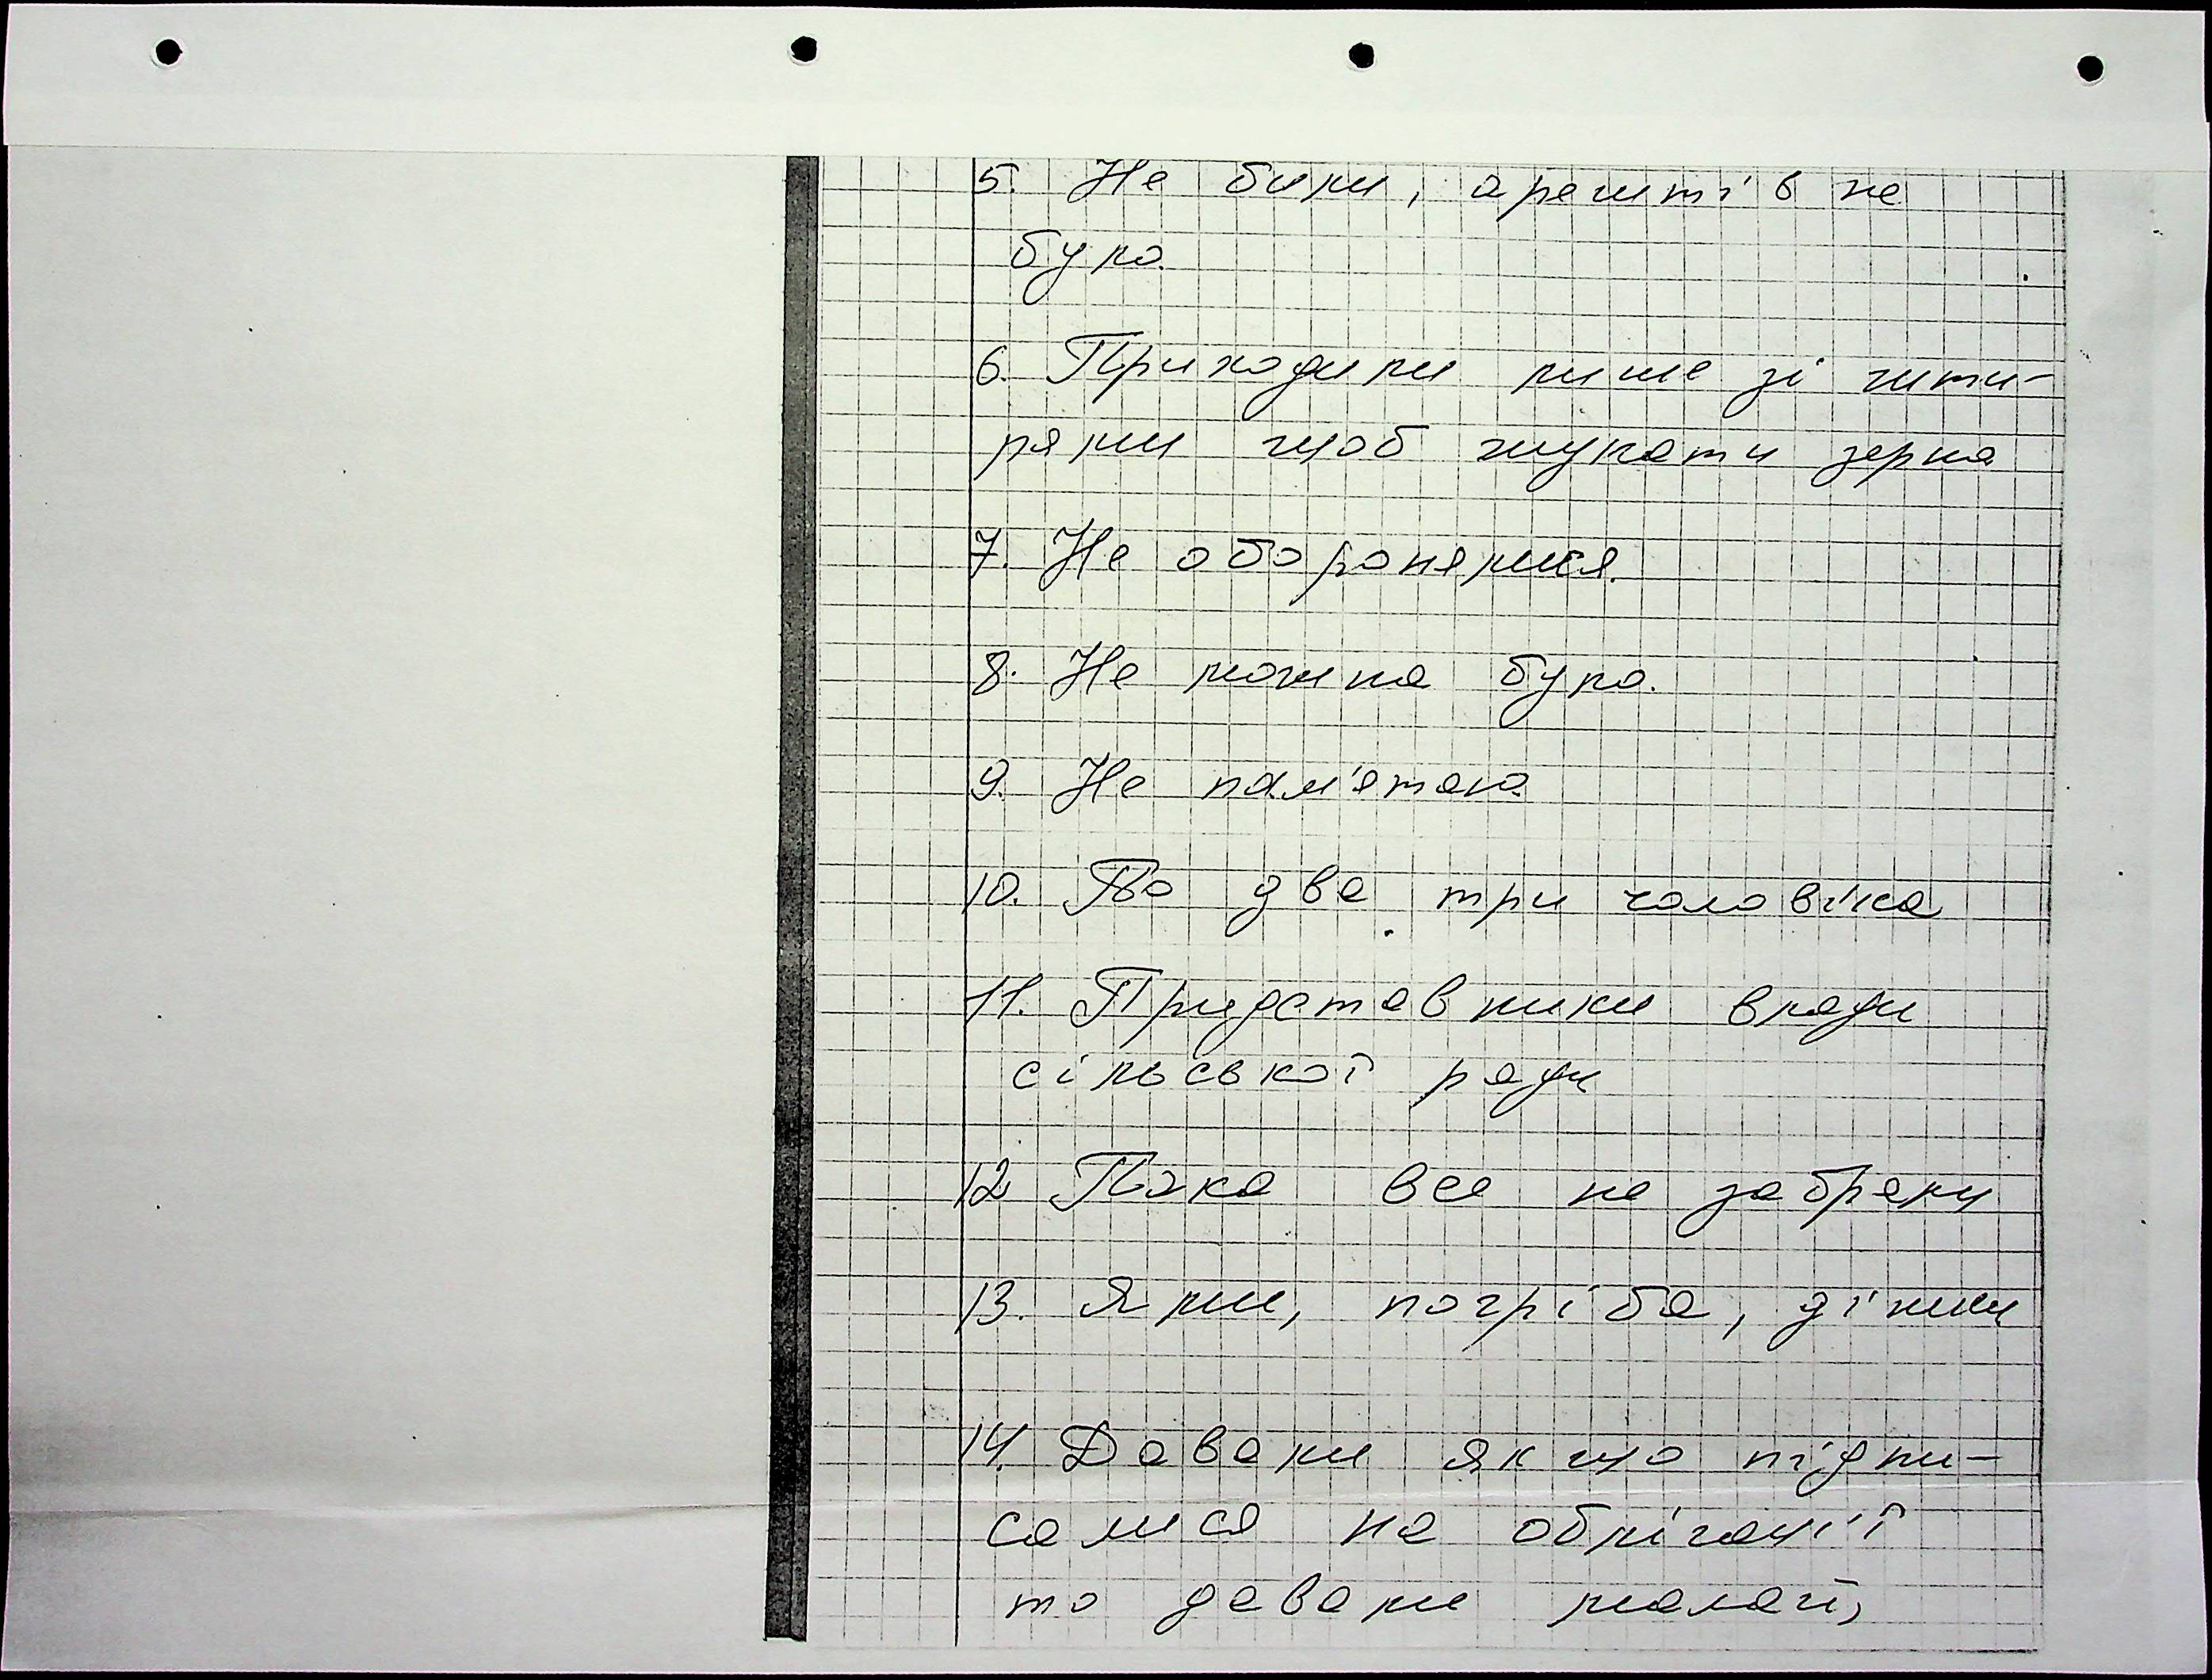 5. Не били, арештів не
було.
6. Приходили лише зі шти-
рями щоб шукати зерна
7. Не оборонялися.
8. Не можна було.
9. Не пам'ятаю.
10. По два три чоловіка
11. Придставники влади
сільської ради
12 Поки все не забрали
13. Ями, погріба, діжки
14. Давали якщо підпи-
сался на облігації
то давали жалай,